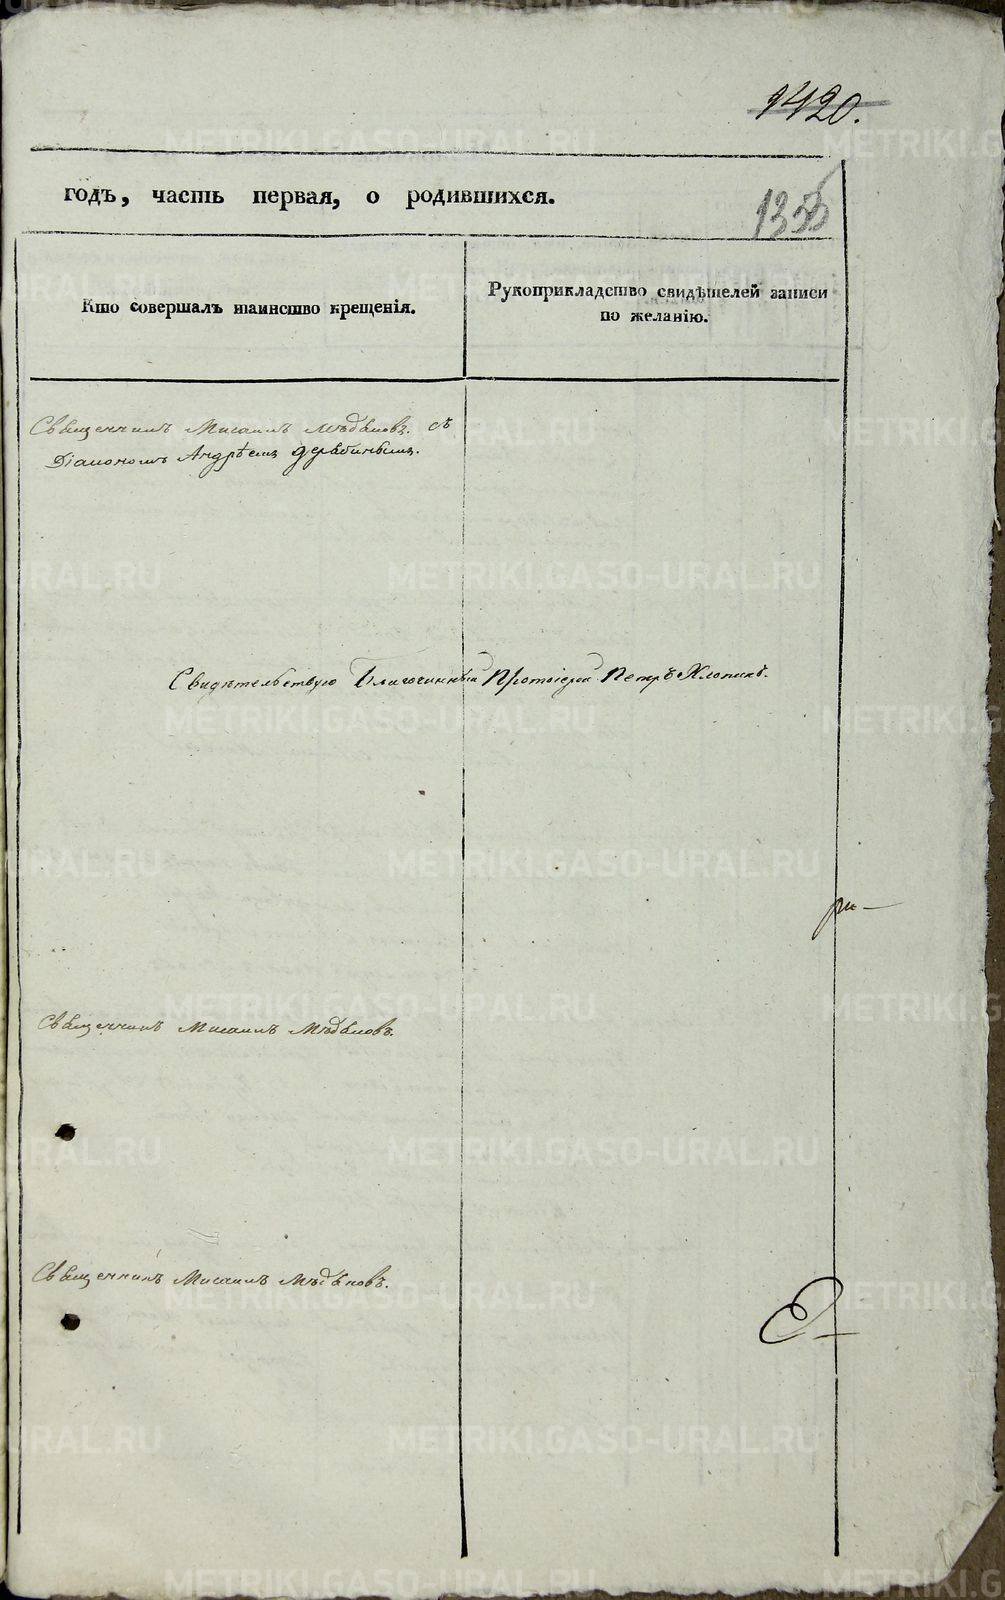 1420.
годъ, часть первая, о родившихся.
1355
Кто совершалъ таинство крещенія.
Рукоприкладство свидѣтелей записи
по желанію.
Священникъ Михаилъ съ
Діакономъ Андреемъ
Свидѣтельствую Благочинный Протоіерей Петръ Хлопинъ.
ри
Священникъ Михаилъ
Священникъ Михаилъ
METRIKI.GASO-URAL.RU